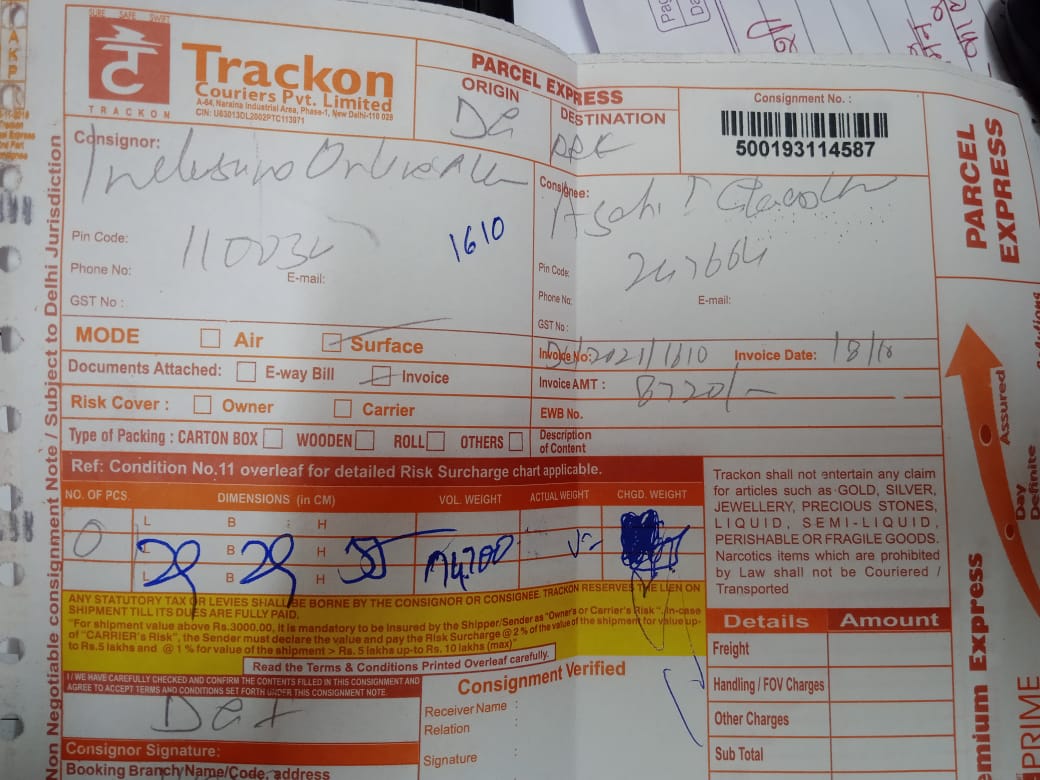 SURE SAFE SWIFT
TRACKON
Trackon
Couriers Pvt. Limited
A-64, Naraina Industrial Area, Phase-1, New Delhi-110 028
CIN: U63013DL2002PTC113971
PARCEL EXPRESS
ORIGIN
DESTINATION
Consignment No. :
500193114587
PARCEL EXPRESS
Non Negotiable consignment Note / Subject to Delhi Jurisdiction
Consignor:
Consignee:
1610
Pin Code:
Phone No:
E-mail:
GST No :
Pin Code: 247664
Phone No:
E-mail:
GST No :
MODE Air Surface
Documents Attached: E-way Bill Invoice
Risk Cover : Owner Carrier
Type of Packing : CARTON BOX WOODEN ROLL OTHERS
Invoice No: /2021/1610 Invoice Date:
Invoice AMT : 8720/-
EWB No.
Description of Content
Ref: Condition No.11 overleaf for detailed Risk Surcharge chart applicable.
NO. OF PCS. DIMENSIONS (in CM) VOL. WEIGHT ACTUAL WEIGHT CHGD. WEIGHT
L B H
L B H
L B H
29 29
Trackon shall not entertain any claim
for articles such as GOLD, SILVER,
JEWELLERY, PRECIOUS STONES,
LIQUID, SEMI-LIQUID,
PERISHABLE OR FRAGILE GOODS.
Narcotics items which are prohibited
by Law shall not be Couriered /
Transported
ANY STATUTORY TAX OR LEVIES SHALL BE BORNE BY THE CONSIGNOR OR CONSIGNEE. TRACKON RESERVES THE LIEN ON
SHIPMENT TILL ITS DUES ARE FULLY PAID.
"For shipment value above Rs.3000.00, it is mandatory to be insured by the Shipper/Sender as "Owner's or Carrier's Risk". In-case
of "CARRIER's Risk", the Sender must declare the value and pay the Risk Surcharge @ 2% of the value of the shipment for value up-
to Rs.5 lakhs and @ 1% for value of the shipment > Rs. 5 lakhs up-to Rs. 10 lakhs (max)"
Read the Terms & Conditions Printed Overleaf carefully.
I / WE HAVE CAREFULLY CHECKED AND CONFIRM THE CONTENTS FILLED IN THIS CONSIGNMENT AND
AGREE TO ACCEPT TERMS AND CONDITIONS SET FORTH UNDER THIS CONSIGNMENT NOTE.
Consignment Verified
Receiver Name :
Relation :
Signature :
Consignor Signature:
Booking Branch Name/Code, address
Details Amount
Freight
Handling / FOV Charges
Other Charges
Sub Total
Assured
Day Definite
mium Express
PRIME